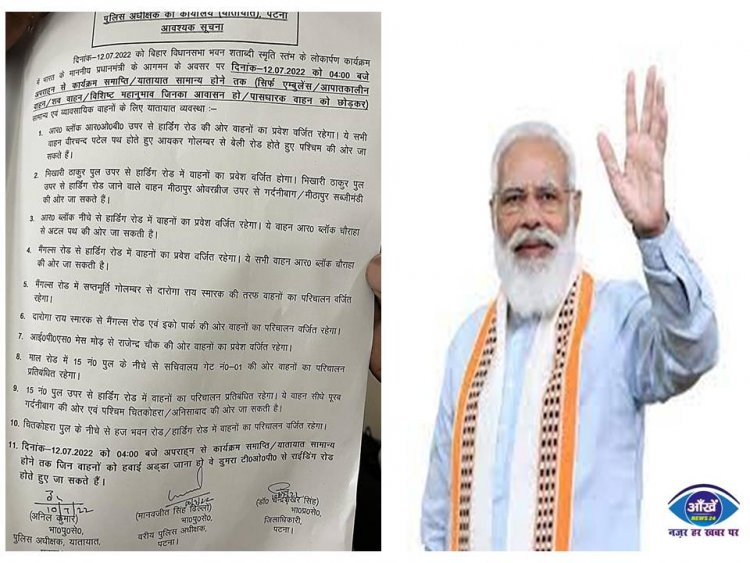 पुलिस अधीक्षक का कार्यालय (यातायात), पटना
आवश्यक सूचना
दिनांक–12.07.2022 को बिहार विधानसभा भवन शताब्दी स्मृति स्तंभ के लोकार्पण कार्यक्रम
में भारत के माननीय प्रधानमंत्री के आगमन के अवसर पर दिनांक–12.07.2022 को 04:00 बजे
अपराह्न से कार्यक्रम समाप्ति/यातायात सामान्य होने तक (सिर्फ एम्बुलेंस/आपातकालीन
वाहन/शव वाहन/विशिष्ट महानुभाव जिनका आवासन हो/पासधारक वाहन को छोड़कर)
सामान्य एवं व्यावसायिक वाहनों के लिए यातायात व्यवस्था :–
1. आर० ब्लॉक आर०ओ०बी० उपर से हार्डिंग रोड की ओर वाहनों का प्रवेश वर्जित रहेगा। ये सभी
वाहन वीरचन्द पटेल पथ होते हुए आयकर गोलम्बर से बेली रोड होते हुए पश्चिम की ओर जा
सकते हैं।
2. भिखारी ठाकुर पुल उपर से हार्डिंग रोड में वाहनों का प्रवेश वर्जित होगा। भिखारी ठाकुर पुल
उपर से हार्डिंग रोड जाने वाले वाहन मीठापुर ओवरब्रीज उपर से गर्दनीबाग/मीठापुर सब्जीमंडी
की ओर जा सकते है।
3. आर० ब्लॉक नीचे से हार्डिंग रोड में वाहनों का प्रवेश वर्जित रहेगा। ये वाहन आर० ब्लॉक चौराहा
से अटल पथ की ओर जा सकते है।
4. मैंगल्स रोड से हार्डिंग रोड में वाहनों का प्रवेश वर्जित रहेगा। ये सभी वाहन आर० ब्लॉक चौराहा
की ओर जा सकती है।
5. मैंगल्स रोड में सप्तमूर्ति गोलम्बर से दारोगा राय स्मारक की तरफ वाहनों का परिचालन वर्जित
रहेगा।
6. दारोगा राय स्मारक से मैंगल्स रोड एवं इको पार्क की ओर वाहनों का परिचालन वर्जित रहेगा।
7. आई०पी०एस० मेस मोड़ से राजेन्द्र चौक की ओर वाहनों का प्रवेश वर्जित रहेगा।
8. माल रोड में 15 नं० पुल के नीचे से सचिवालय गेट नं०–01 की ओर वाहनों का परिचालन
प्रतिबंधित रहेगा।
9. 15 नं० पुल उपर से हार्डिंग रोड में वाहनों का परिचालन प्रतिबंधित रहेगा। ये वाहन सीधे पूरब
गर्दनीबाग की ओर एवं पश्चिम चितकोहरा/अनिसाबाद की ओर जा सकती है।
10. चितकोहरा पुल के नीचे से हज भवन रोड/हार्डिंग रोड में वाहनों का परिचालन वर्जित रहेगा।
11. दिनांक–12.07.2022 को 04:00 बजे अपराहन से कार्यक्रम समाप्ति/यातायात सामान्य
होने तक जिन वाहनों को हवाई अड्डा जाना हो वे डुमरा टी०ओ०पी० से राईडिंग रोड
होते हुए जा सकते हैं।
10/7/22
(अनिल कुमार)
भा०पु०से०,
पुलिस अधीक्षक, यातायात,
पटना।
(मानवजीत सिंह ढिल्लो)
भा०पु०से०,
वरीय पुलिस अधीक्षक,
पटना।
(डॉ० चन्द्रशेखर सिंह)
भा०प्र०से०,
जिलाधिकारी,
पटना।
आँखें
NEWS 24
नज़र हर खबर पर